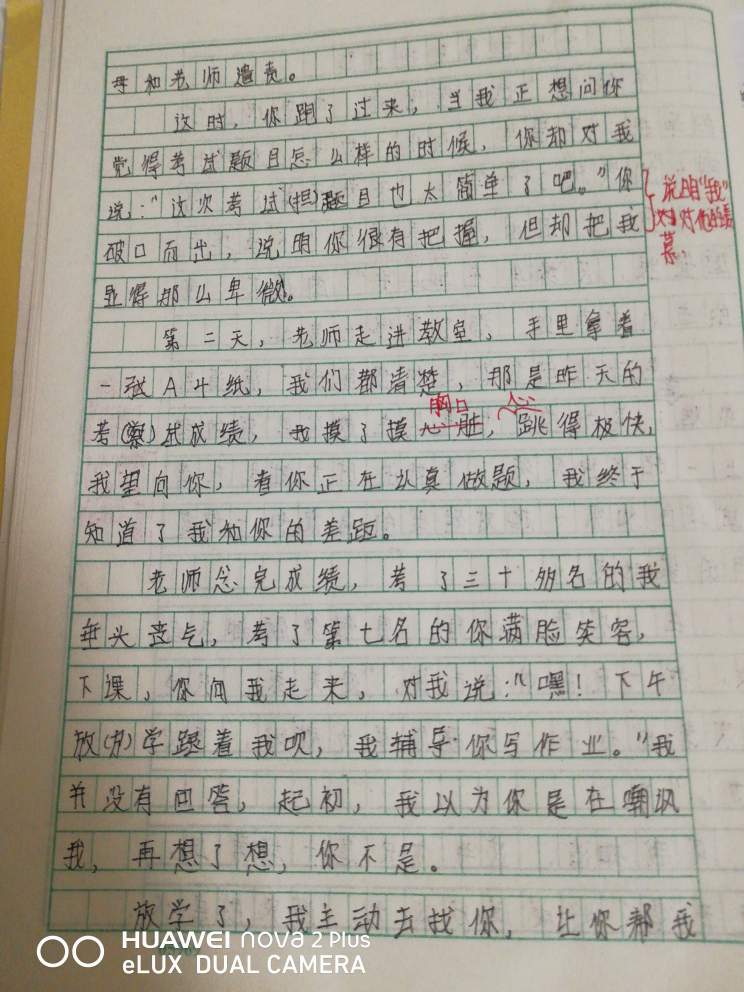 母和老师遣责。
这时，你跑了过来，当我正想问你
觉得考试题目怎么样的时候，你却对我
说："这次考试题目也太简单了吧。"你
破口而出，说明你很有把握，但却把我
显得那么卑微。
说明"我"
对他的羡
慕
第二天，老师走进教室，手里拿着
一张A4纸，我们都清楚，那是昨天的
考(察)试成绩，我摸了摸心脏，跳得极快，
胸口 心
我望向你，看你正在认真做题，我终于
知道了我和你的差距。
老师念完成绩，考了三十多名的我
垂头丧气，考了第七名的你满脸笑容，
下课，你向我走来，对我说："嘿！下午
放(办)学跟着我呗，我辅导你写作业。"我
并没有回答，起初，我以为你是在嘲讽
我，再想了想，你不是。
放学了，我主动去找你，让你帮我
HUAWEI nova 2 Plus
eLUX DUAL CAMERA